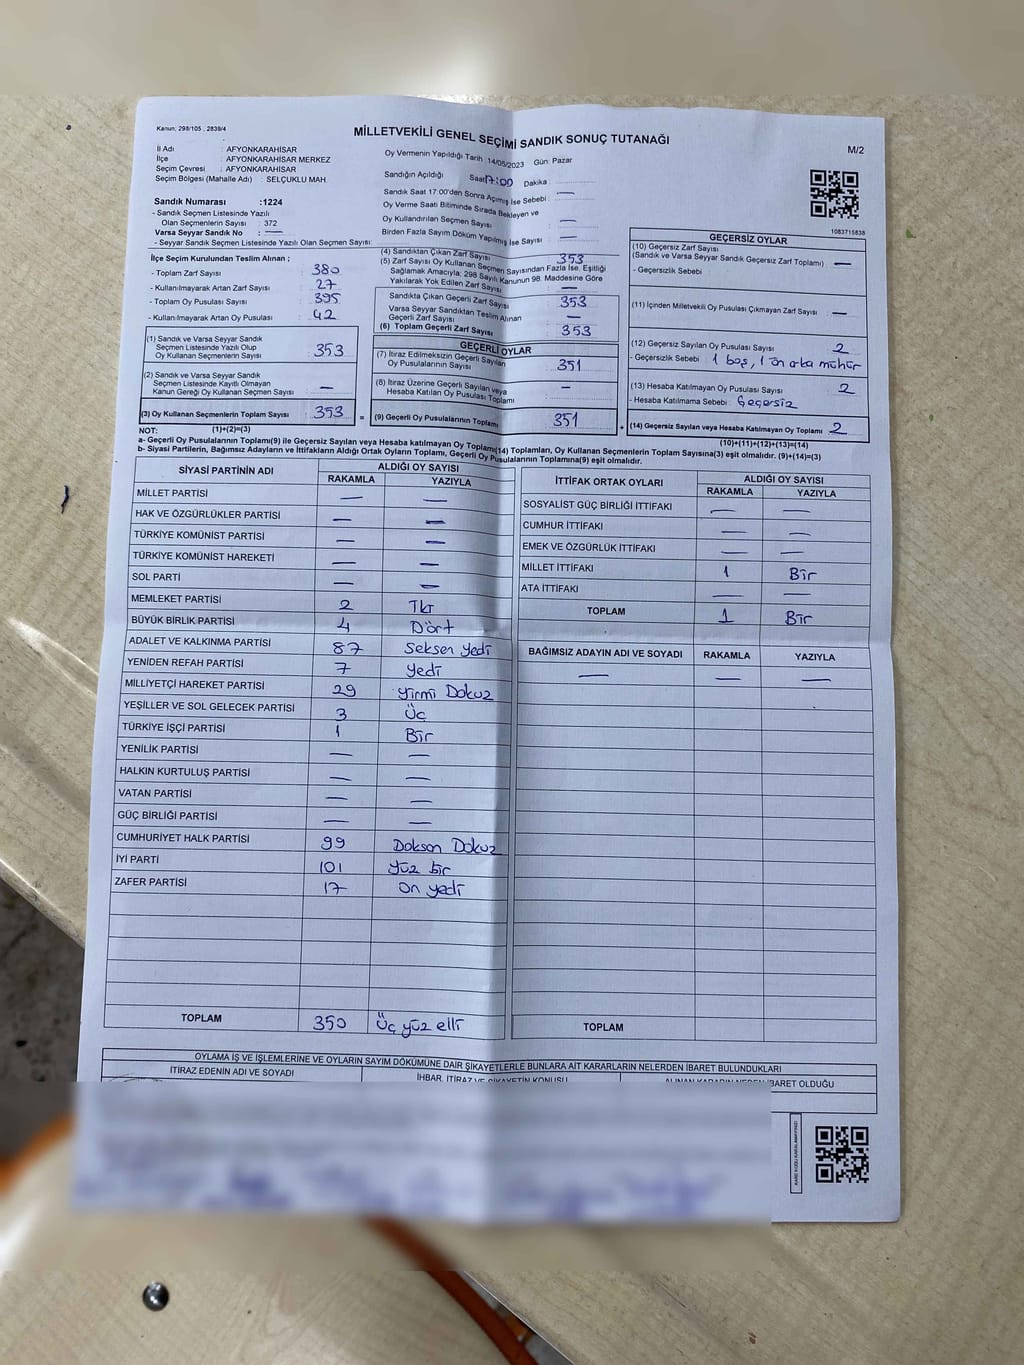 Kanun; 298/105 , 2839/4
MİLLETVEKİLİ GENEL SEÇİMİ SANDIK SONUÇ TUTANAĞI
M/2
İl Adı : AFYONKARAHİSAR
İlçe : AFYONKARAHİSAR MERKEZ
Seçim Çevresi : AFYONKARAHİSAR
Seçim Bölgesi (Mahalle Adı) : SELÇUKLU MAH.
Sandık Numarası :1224
- Sandık Seçmen Listesinde Yazılı
Olan Seçmenlerin Sayısı : 372
Varsa Seyyar Sandık No : —
- Seyyar Sandık Seçmen Listesinde Yazılı Olan Seçmen Sayısı:
Oy Vermenin Yapıldığı Tarih :14/05/2023 Gün: Pazar
Sandığın Açıldığı Saat:17:00 Dakika :
Sandık Saat 17:00'den Sonra Açılmış İse Sebebi : —
Oy Verme Saati Bitiminde Sırada Bekleyen ve
Oy Kullandırılan Seçmen Sayısı : —
Birden Fazla Sayım Döküm Yapılmış İse Sayısı : —
İlçe Seçim Kurulundan Teslim Alınan ;
- Toplam Zarf Sayısı : 380
- Kullanılmayarak Artan Zarf Sayısı : 27
- Toplam Oy Pusulası Sayısı : 395
- Kullanılmayarak Artan Oy Pusulası : 42
(1) Sandık ve Varsa Seyyar Sandık
Seçmen Listesinde Yazılı Olup
Oy Kullanan Seçmenlerin Sayısı : 353
(2) Sandık ve Varsa Seyyar Sandık
Seçmen Listesinde Kayıtlı Olmayan
Kanun Gereği Oy Kullanan Seçmen Sayısı : —
(3) Oy Kullanan Seçmenlerin Toplam Sayısı : 353 =
(4) Sandıktan Çıkan Zarf Sayısı : 353
(5) Zarf Sayısı Oy Kullanan Seçmen Sayısından Fazla İse, Eşitliği
Sağlamak Amacıyla; 298 Sayılı Kanunun 98. Maddesine Göre
Yakılarak Yok Edilen Zarf Sayısı : —
Sandıkta Çıkan Geçerli Zarf Sayısı : 353
Varsa Seyyar Sandıktan Teslim Alınan
Geçerli Zarf Sayısı : —
(6) Toplam Geçerli Zarf Sayısı : 353
GEÇERLİ OYLAR
(7) İtiraz Edilmeksizin Geçerli Sayılan
Oy Pusulalarının Sayısı : 351
(8) İtiraz Üzerine Geçerli Sayılan veya
Hesaba Katılan Oy Pusulası Toplamı : —
(9) Geçerli Oy Pusulalarının Toplamı : 351 +
1083715838
GEÇERSİZ OYLAR
(10) Geçersiz Zarf Sayısı
(Sandık ve Varsa Seyyar Sandık Geçersiz Zarf Toplamı) : —
- Geçersizlik Sebebi
(11) İçinden Milletvekili Oy Pusulası Çıkmayan Zarf Sayısı : —
(12) Geçersiz Sayılan Oy Pusulası Sayısı : 2
- Geçersizlik Sebebi : 1 boş, 1 ön arka mühür
(13) Hesaba Katılmayan Oy Pusulası Sayısı : 2
- Hesaba Katılmama Sebebi : Geçersiz
(14) Geçersiz Sayılan veya Hesaba Katılmayan Oy Toplamı : 2
NOT: (1)+(2)=(3) (10)+(11)+(12)+(13)=(14)
a- Geçerli Oy Pusulalarının Toplamı(9) ile Geçersiz Sayılan veya Hesaba katılmayan Oy Toplamı(14) Toplamları, Oy Kullanan Seçmenlerin Toplam Sayısına(3) eşit olmalıdır. (9)+(14)=(3)
b- Siyasi Partilerin, Bağımsız Adayların ve İttifakların Aldığı Ortak Oyların Toplamı, Geçerli Oy Pusulalarının Toplamına(9) eşit olmalıdır.
SİYASİ PARTİNİN ADI ALDIĞI OY SAYISI
RAKAMLA YAZIYLA
MİLLET PARTİSİ — —
HAK VE ÖZGÜRLÜKLER PARTİSİ — —
TÜRKİYE KOMÜNİST PARTİSİ — —
TÜRKİYE KOMÜNİST HAREKETİ — —
SOL PARTİ — —
MEMLEKET PARTİSİ 2 İki
BÜYÜK BİRLİK PARTİSİ 4 Dört
ADALET VE KALKINMA PARTİSİ 87 Seksen yedi
YENİDEN REFAH PARTİSİ 7 Yedi
MİLLİYETÇİ HAREKET PARTİSİ 29 yirmi Dokuz
YEŞİLLER VE SOL GELECEK PARTİSİ 3 Üç
TÜRKİYE İŞÇİ PARTİSİ 1 Bir
YENİLİK PARTİSİ — —
HALKIN KURTULUŞ PARTİSİ — —
VATAN PARTİSİ — —
GÜÇ BİRLİĞİ PARTİSİ — —
CUMHURİYET HALK PARTİSİ 99 Doksan Dokuz
İYİ PARTİ 101 yüz bir
ZAFER PARTİSİ 17 On yedi
TOPLAM 350 Üç yüz elli
İTTİFAK ORTAK OYLARI ALDIĞI OY SAYISI
RAKAMLA YAZIYLA
SOSYALİST GÜÇ BİRLİĞİ İTTİFAKI — —
CUMHUR İTTİFAKI — —
EMEK VE ÖZGÜRLÜK İTTİFAKI — —
MİLLET İTTİFAKI 1 Bir
ATA İTTİFAKI — —
TOPLAM 1 Bir
BAĞIMSIZ ADAYIN ADI VE SOYADI RAKAMLA YAZIYLA
— — —
TOPLAM
OYLAMA İŞ VE İŞLEMLERİNE VE OYLARIN SAYIM DÖKÜMÜNE DAİR ŞİKAYETLERLE BUNLARA AİT KARARLARIN NELERDEN İBARET BULUNDUKLARI
İTİRAZ EDENİN ADI VE SOYADI İHBAR, İTİRAZ VE ŞİKAYETİN KONUSU ALINAN KARARIN NEDEN İBARET OLDUĞU